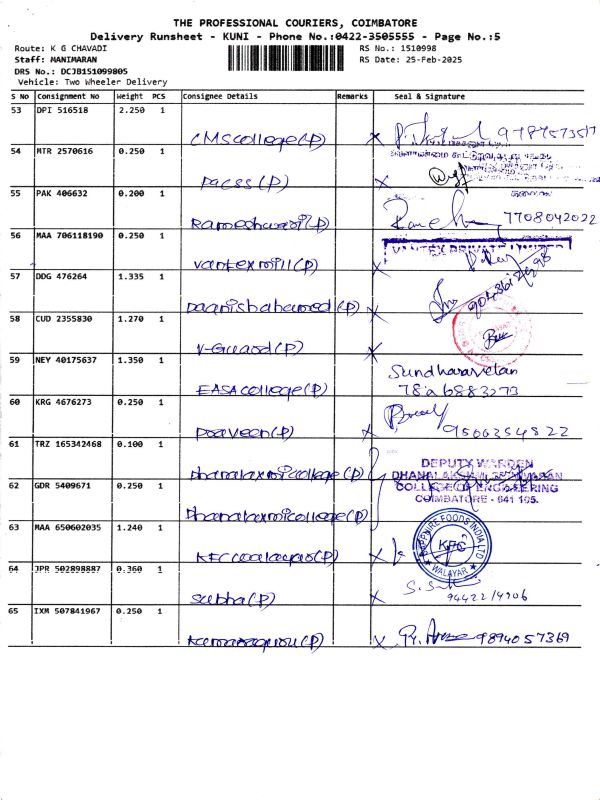 THE PROFESSIONAL COURIERS, COIMBATORE
Delivery Runsheet - KUNI - Phone No.:0422-3505555 - Page No.:5
Route: K G CHAVADI
RS No.: 1510998
Staff: MANIMARAN
RS Date: 25-Feb-2025
DRS No.: DCJB151099805
Vehicle: Two Wheeler Delivery
S No Consignment No Weight PCS Consignee Details Remarks Seal & Signature
53 DPI 516518 2.250 1
CMS college (P)
54 MTR 2570616 0.250 1
Pacss (P)
55 PAK 406632 0.200 1
Rameshwari (P) 7708042022
56 MAA 706118190 0.250 1
vantexmill (P)
57 DDG 476264 1.335 1
Daanishahamed (P)
58 CUD 2355830 1.270 1
V-Guard (P)
59 NEY 40175637 1.350 1
Sundharavelan
EASA college (P)
60 KRG 4676273 0.250 1
Praveen (P) 9500354822
61 TRZ 165342468 0.100 1
DEPUTY WARDEN
Dhanalaxmi college (P)
COLLEGE OF ENGINEERING
COIMBATORE - 641 105.
62 GDR 5409671 0.250 1
Dhanalaxmi college (P)
63 MAA 650602035 1.240 1
SAPPHIRE FOODS INDIA LTD
KFC
WALAYAR
KFC walayar (P)
64 JPR 502898887 0.360 1
Subha (P)
65 IXM 507841967 0.250 1
9894057369